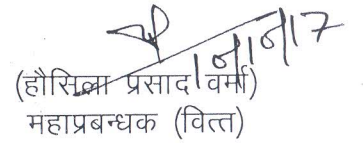 (हौसिला प्रसाद वर्मा)
महाप्रबन्धक (वित्त)